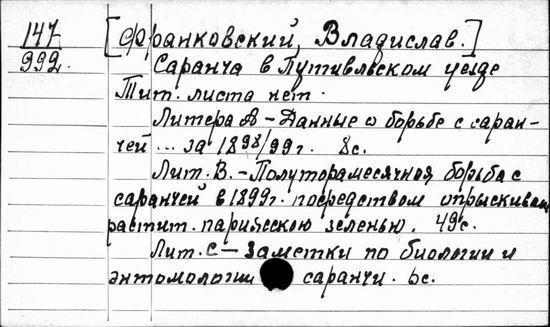 147
992.
[Франковский, Владислав.]
Саранча в Путивльском уезде
Тит. листа нет.
Литера А – Данные о борьбе с саран-
чей ... за 1898/99 г. 8 с.
Лит. В. – Полуторамесячная борьба с
саранчей в 1899 г. посредством опрыскиван
растит. парижскою зеленью. 49 с.
Лит. С – Заметки по биологии и
энтомологии саранчи. 6 с.